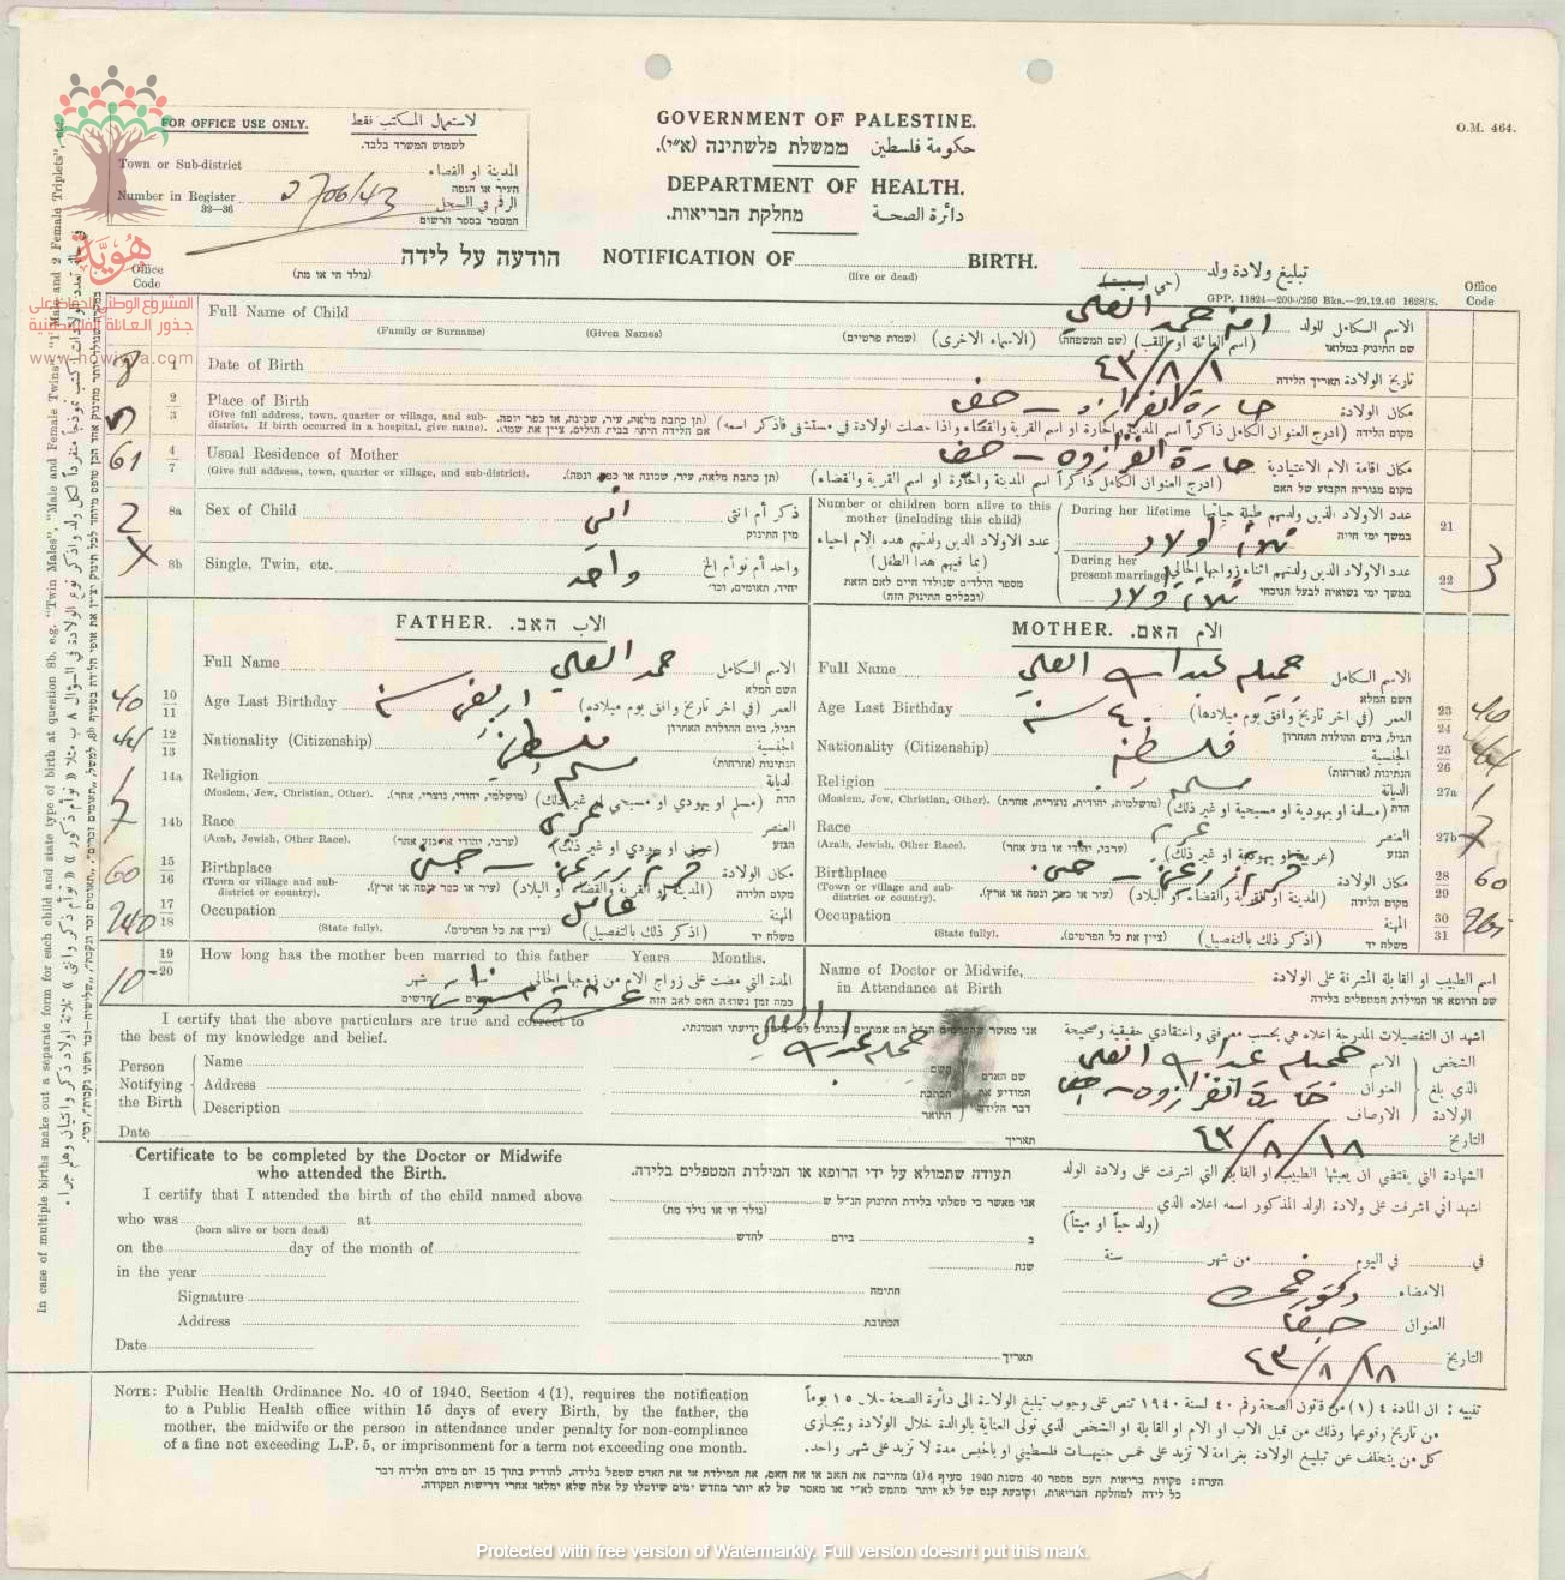 FOR OFFICE USE ONLY. لاستعمال المكتب فقط
לשמוש המשרד בלבד.
Town or Sub-district المدينة او القضاء
העיר או הנפה
Number in Register 2706/43 الرقم في السجل
32—36 המספר בספר הרשום
GOVERNMENT OF PALESTINE.
ממשלת פלשתינה (א״י). حكومة فلسطين
DEPARTMENT OF HEALTH.
מחלקת הבריאות. دائرة الصحة
O.M. 464.
הודעה על לידה NOTIFICATION OF BIRTH. تبليغ ولادة ولد
(נולד חי או מת) (live or dead) (حي او ميت)
GPP. 11824—2000/250 Bks.—29.12.40 1628/S.
Office Code
Office Code
هُويَّة
المشروع الوطني للحفاظ على
جذور العائلة الفلسطينية
www.howiyya.com
Full Name of Child حمد العلي الاسم الكامل للولد
(Family or Surname) (Given Names) (שמות פרטיים) (الاسماء الاخرى) (שם המשפחה) (اسم العائلة او اللقب) שם התינוק במלואו
8 1 Date of Birth ١/٨/٤٣ تاريخ الولادة תאריך הלידה
2/3 Place of Birth حارة مكان الولادة
(Give full address, town, quarter or village, and sub-district. If birth occurred in a hospital, give name). (תן כתבת מלאה, עיר, שכונה, או כפר ונפה. אם הלידה היתה בבית חולים, ציין את שמו). (ادرج العنوان الكامل ذاكراً اسم المدينة والحارة او اسم القرية والقضاء واذا حصلت الولادة في مستشفى فاذكر اسمه) מקום הלידה
61 4/7 Usual Residence of Mother حارة مكان اقامة الام الاعتيادية
(Give full address, town, quarter or village, and sub-district). (תן כתבת מלאה, עיר, שכונה או כפר, ונפה). (ادرج العنوان الكامل ذاكراً اسم المدينة والحارة او اسم القرية والقضاء) מקום מגוריה הקבוע של האם
2 8a Sex of Child انثى ذكر أم انثى
מין התינוק
X 8b Single, Twin, etc. واحد واحد أم توأم الخ
יחיד, תאומים, וכד׳
Number of children born alive to this mother (including this child)
عدد الاولاد الذين ولدتهم هذه الام احياء (بما فيهم هذا الطفل)
מספר הילדים שנולדו חיים לאם הזאת (ובכללים התינוק הזה)
During her lifetime ثلاث اولاد عدد الاولاد الذين ولدتهم طيلة حياتها 21
במשך ימי חייה
During her present marriage ثلاث ولاد عدد الاولاد الذين ولدتهم اثناء زواجها الحالي 22 3
במשך ימי נשואיה לבעל הנוכחי
FATHER. האב. الاب
Full Name حمد العلي الاسم الكامل
השם המלא
40 10/11 Age Last Birthday اربعين سنة العمر (في اخر تاريخ وافق يوم ميلاده)
הגיל, ביום ההולדת האחרון
44 12/13 Nationality (Citizenship) فلسطيني الجنسية
הנתינות (אזרחות)
1 14a Religion مسلم الديانة
(Moslem, Jew, Christian, Other). (מושלמי, יהודי, נוצרי, אחר). (مسلم او يهودي او مسيحي او غير ذلك) הדת
7 14b Race عربي العنصر
(Arab, Jewish, Other Race). (ערבי, יהודי או גזע אחר) (عربي او يهودي او غير ذلك) הגזע
60 15/16 Birthplace قرية مكان الولادة
(Town or village and sub-district or country). (עיר או כפר ונפה או ארץ). (المدينة او القرية والقضاء او البلاد) מקום הלידה
240 17/18 Occupation عامل المهنة
(State fully). (ציין את כל הפרטים). (اذكر ذلك بالتفصيل) משלח יד
MOTHER. האם. الام
Full Name جميله عبدالله العلي الاسم الكامل
השם המלא
Age Last Birthday ٤٠ سنة العمر (في اخر تاريخ وافق يوم ميلادها) 23/24 40
הגיל, ביום ההולדת האחרון
Nationality (Citizenship) فلسطينية الجنسية 25/26 44
הנתינות (אזרחות)
Religion مسلمة الديانة 27a 1
(Moslem, Jew, Christian, Other). (מושלמית, יהודית, נוצרית, אחרת) (مسلمة او يهودية او مسيحية او غير ذلك) הדת
Race العنصر 27b 7
(Arab, Jewish, Other Race). (ערבי, יהודי או גזע אחר) (عربية او يهودية او غير ذلك) הגזע
Birthplace قرية مكان الولادة 28/29 60
(Town or village and sub-district or country). (עיר או כפר ונפה או ארץ). (المدينة او القرية والقضاء او البلاد) מקום הלידה
Occupation المهنة 30/31
(State fully). (ציין את כל הפרטים). (اذكر ذلك بالتفصيل) משלח יד
10 19/20 How long has the mother been married to this father Years Months.
المدة التي مضت على زواج الام من زوجها الحالي عشر سنوات شهر
כמה זמן נשואה האם לאב הזה
Name of Doctor or Midwife, in Attendance at Birth
اسم الطبيب او القابلة المشرفة على الولادة
שם הרופא או המילדת המטפלים בלידה
I certify that the above particulars are true and correct to the best of my knowledge and belief.
اشهد ان التفصيلات المدرجة اعلاه هي بحسب معرفتي واعتقادي حقيقية وصحيحة
جميله عبدالله العلي
Person Notifying the Birth
Name
Address
Description
Date
שם האדם המודיע את דבר הלידה
השם
הכתבת
התואר
תאריך
الشخص الذي بلغ الولادة
الاسم جميله عبدالله العلي
العنوان حارة
الاوصاف
التاريخ ١٨/٨/٤٣
Certificate to be completed by the Doctor or Midwife who attended the Birth.
I certify that I attended the birth of the child named above
who was at
(born alive or born dead)
on the day of the month of
in the year
Signature
Address
Date
תעודה שתמולא על ידי הרופא או המילדת המטפלים בלידה.
אני מאשר כי טפלתי בלידת התינוק הנ״ל ש
(נולד חי או נולד מת)
ב ביום לחדש
שנת
חתימה
הכתובת
תאריך
الشهادة التي يقتضي ان يعبئها الطبيب او القابلة التي اشرفت على ولادة الولد
اشهد اني اشرفت على ولادة الولد المذكور اسمه اعلاه الذي
(ولد حياً او ميتاً)
في في اليوم من شهر سنة
الامضاء دكتور
العنوان حيفا
التاريخ ١٨/٨/٤٣
NOTE: Public Health Ordinance No. 40 of 1940, Section 4 (1), requires the notification
to a Public Health office within 15 days of every Birth, by the father, the
mother, the midwife or the person in attendance under penalty for non-compliance
of a fine not exceeding L.P. 5, or imprisonment for a term not exceeding one month.
تنبيه : ان المادة ٤ (١) من قانون الصحة رقم ٤٠ لسنة ١٩٤٠ تنص على وجوب تبليغ الولادة الى دائرة الصحة خلال ١٥ يوماً
من تاريخ وقوعها وذلك من قبل الاب او الام او القابلة او الشخص الذي تولى العناية بالوالدة خلال الولادة ويجازى
كل من يتخلف عن تبليغ الولادة بغرامة لا تزيد على خمس جنيهات فلسطيني او بالحبس مدة لا تزيد على شهر واحد.
הערה: פקודת בריאות העם מספר 40 משנת 1940 סעיף 4(1) מחייבת את האב או את האם, את המילדת או את האדם שטפל בלידה, להודיע בתוך 15 יום מיום הלידה דבר
כל לידה למחלקת הבריאות, וקובעת קנס של לא יותר מחמש לא״י או מאסר של לא יותר מחדש ימים שיוטלו על אלה שלא ימלאו אחרי דרישות הפקודה.
In case of multiple births make out a separate form for each child and state type of birth at question 8b, e.g. "Twin Males", "Male and Female Twins", "1 Male and 2 Female Triplets", etc.
Protected with free version of Watermarkly. Full version doesn't put this mark.